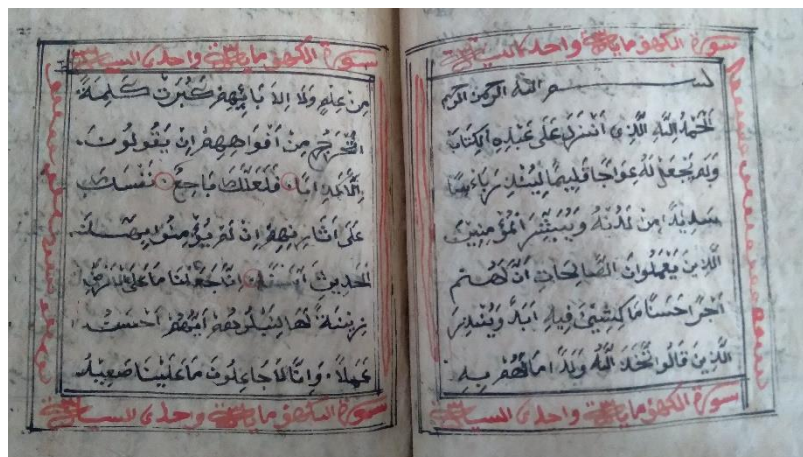 سورة الكهف ماية واحدى
بســـــم الله الرحمن الرحيم
اَلْحَمْدُ لِلَّهِ الَّذِى اَنْزَلَ عَلَى عَبْدِهِ الْكِتَابَ
وَلَمْ يَجْعَلْ لَهُ عِوَجًا قَيِّمًا لِيُنْذِرَ بَاءْسًا
شَدِيدًا مِنْ لَدُنْهُ وَيُبَشِّرَ الْمُؤْمِنِينَ
الَّذِينَ يَعْمَلُونَ الصَّالِحَاتِ اَنَّ لَهُمْ
اَجْرًا حَسَنًا مَاكِثِينَ فِيهِ اَبَدًا وَيُنْذِرَ
الَّذِينَ قَالُوا تَّخَذَ اللهُ وَلَدًا مَا لَهُمْ بِهِ
سورة الكهف ماية واحدى
سورة الكهف ماية واحدى
مِنْ عِلْمٍ وَلَا لِاَبَائِهِمْ كَبُرَتْ كَلِمَةً
تَخْرُجُ مِنْ اَفْوَاهِهِمْ اِنْ يَقُولُونَ
اِلَّا كَذِبًا فَلَعَلَّكَ بَاخِعٌ نَفْسَكَ
عَلَى اَثَارِهِمْ اِنْ لَمْ يُؤْمِنُوا بِهَذَا
الْحَدِيثِ اَسَفًا اِنَّا جَعَلْنَا مَا عَلَى الْاَرْضِ
زِينَةً لَهَا لِنَبْلُوَهُمْ اَيُّهُمْ اَحْسَنُ
عَمَلًا وَاِنَّا لَجَاعِلُونَ مَا عَلَيْهَا صَعِيْدًا
سورة الكهف ماية واحدى